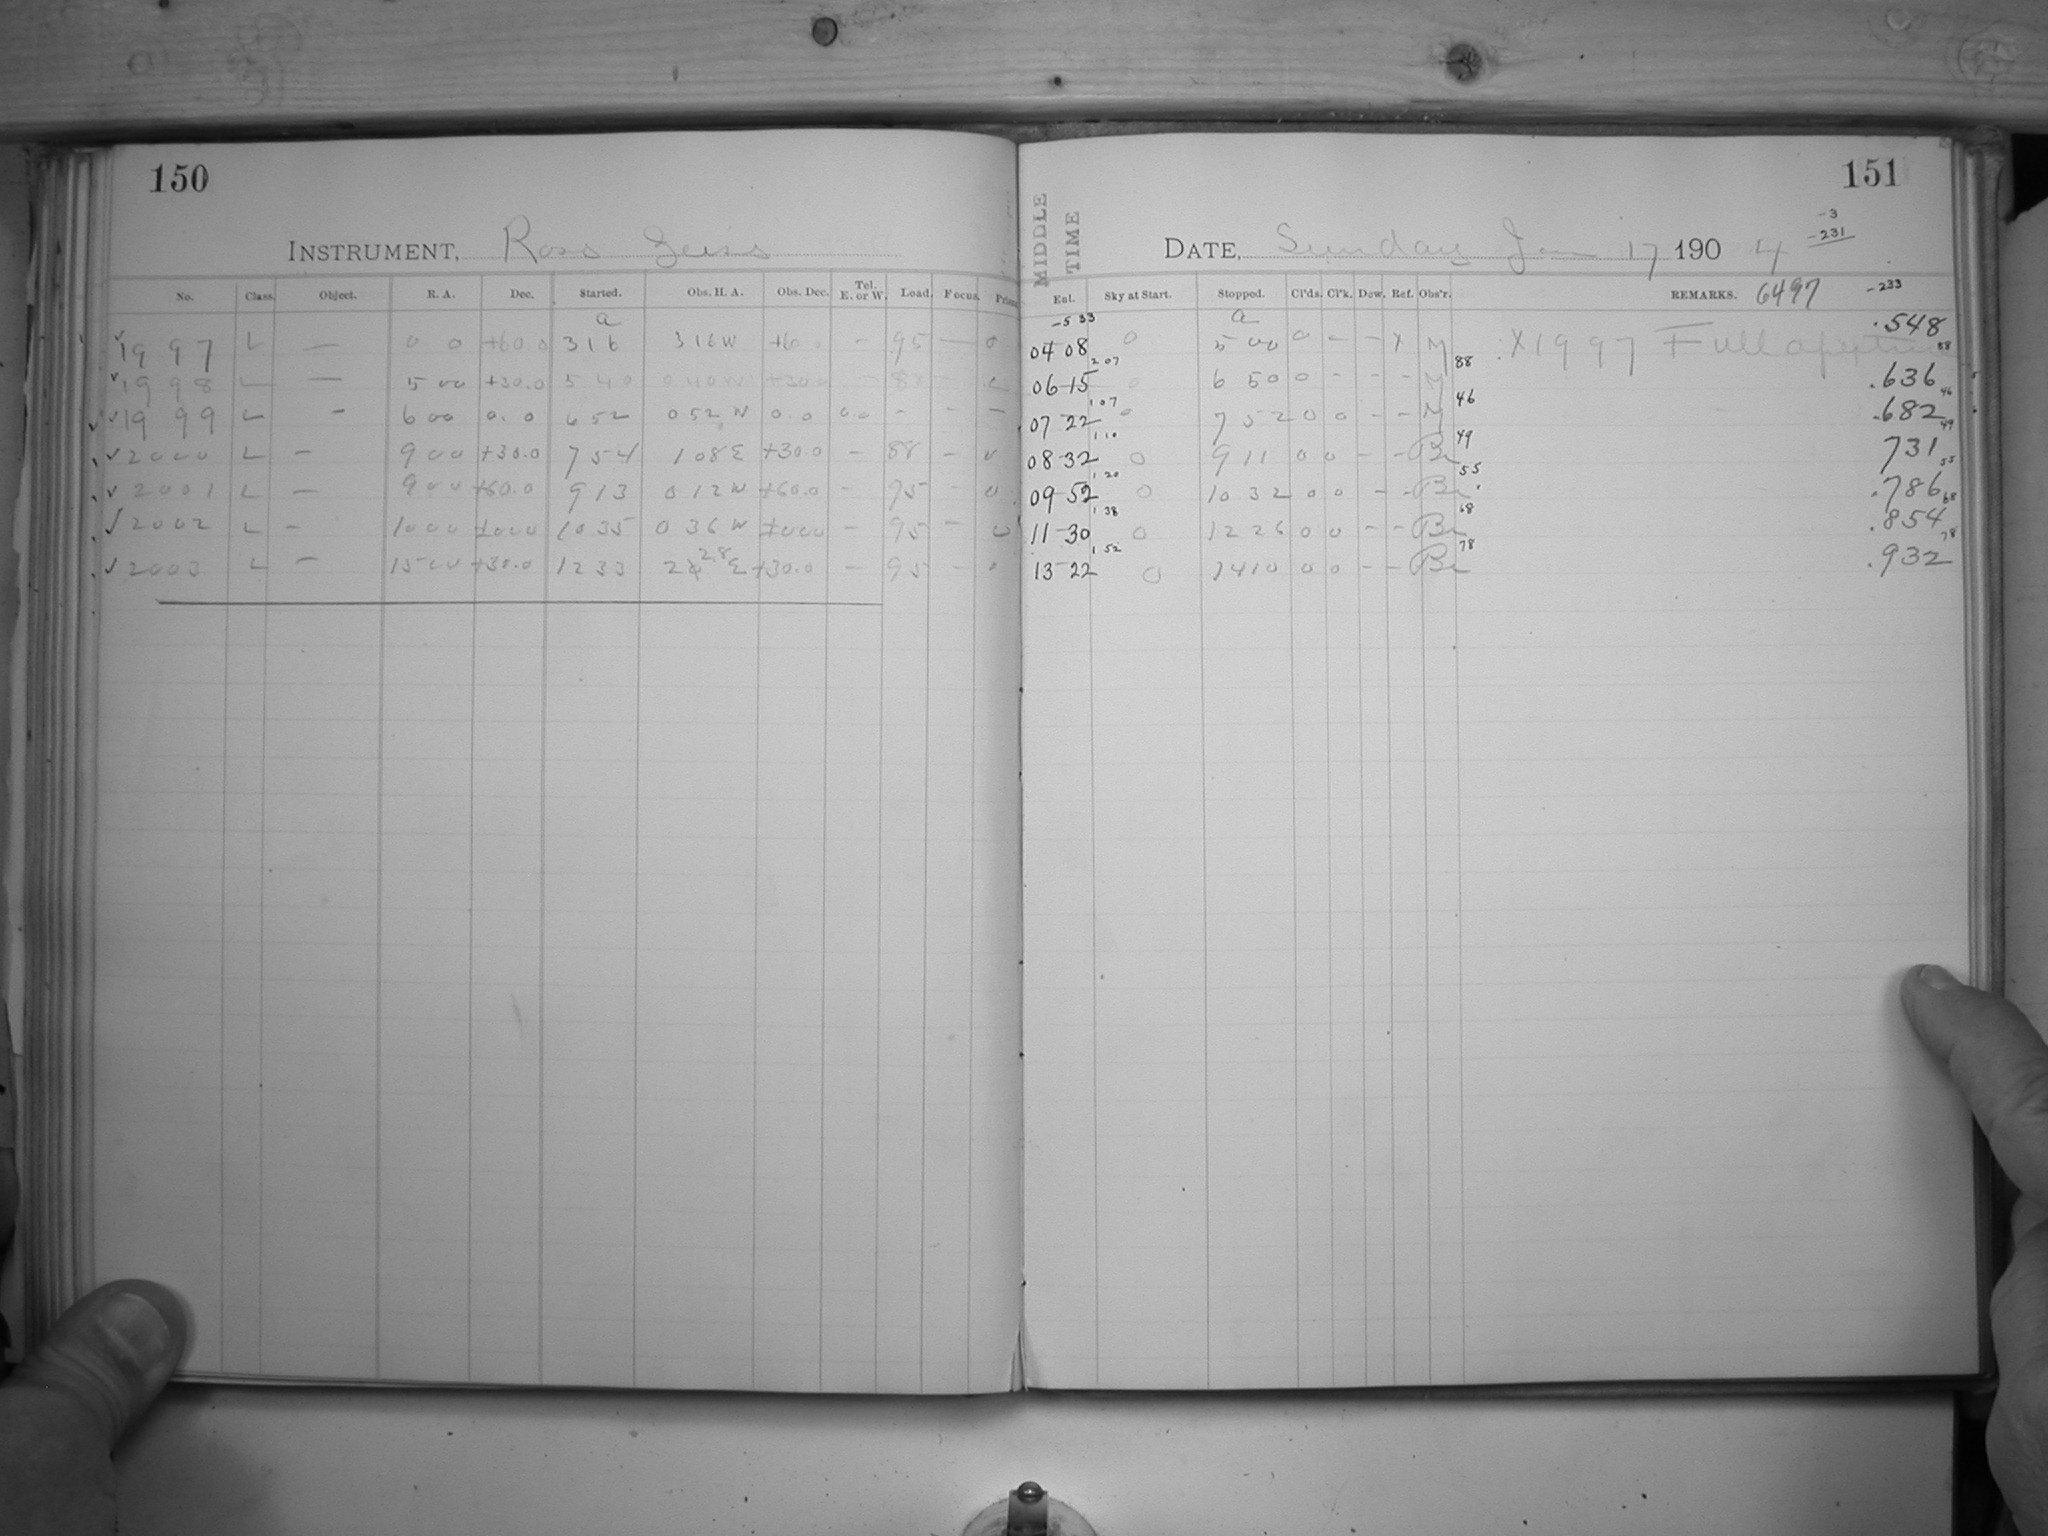 150
INSTRUMENT, Ross Zeiss
No. Class. Object. R. A. Dec. Started. Obs. H. A. Obs. Dec. Tel. E. or W. Load. Focus.
a
√ 1997 L — 0 0 +60.0 3 16 3 16 W +60 — 95 — 0
√ 1998 L — 5 00 +30.0 5 40 0 40 W +30.0 — 88 —
√ 1999 L — 6 00 0.0 6 52 0 52 W 0.0 0.0 - - —
√ 2000 L — 9 00 +30.0 7 54 1 08 E +30.0 — 88 -
√ 2001 L — 9 00 +60.0 9 13 0 12 W +60.0 — 95 - 0
√ 2002 L — 10 00 10 35 0 36 W — 95 - 0
√ 2003 L — 15 00 +30.0 12 33 28 E +30.0 — 95 -
151
MIDDLE TIME
DATE, Sunday Jan 17 1904
-3
-231
-233
Enl. Sky at Start. Stopped. Cl'ds. Cl'k. Dew. Ref. Obs'r. REMARKS. 6497
-5 33 a
04 08 0 5 00 0 - - x M X 1997 Full aperture .548
2 07 88 88
06-15 0 6 50 0 - - - M .636
1 07 46 46
07 22 0 7 52 0 0 - - M .682
1 10 49 49
08-32 0 9 11 0 0 - - Br 731
1 20 55 55
09-52 0 10 32 0 0 - - Br .786
1 38 68 68
11-30 0 12 26 0 0 - - Br .854
1 52 78 78
13-22 0 14 10 0 0 - - Br .932